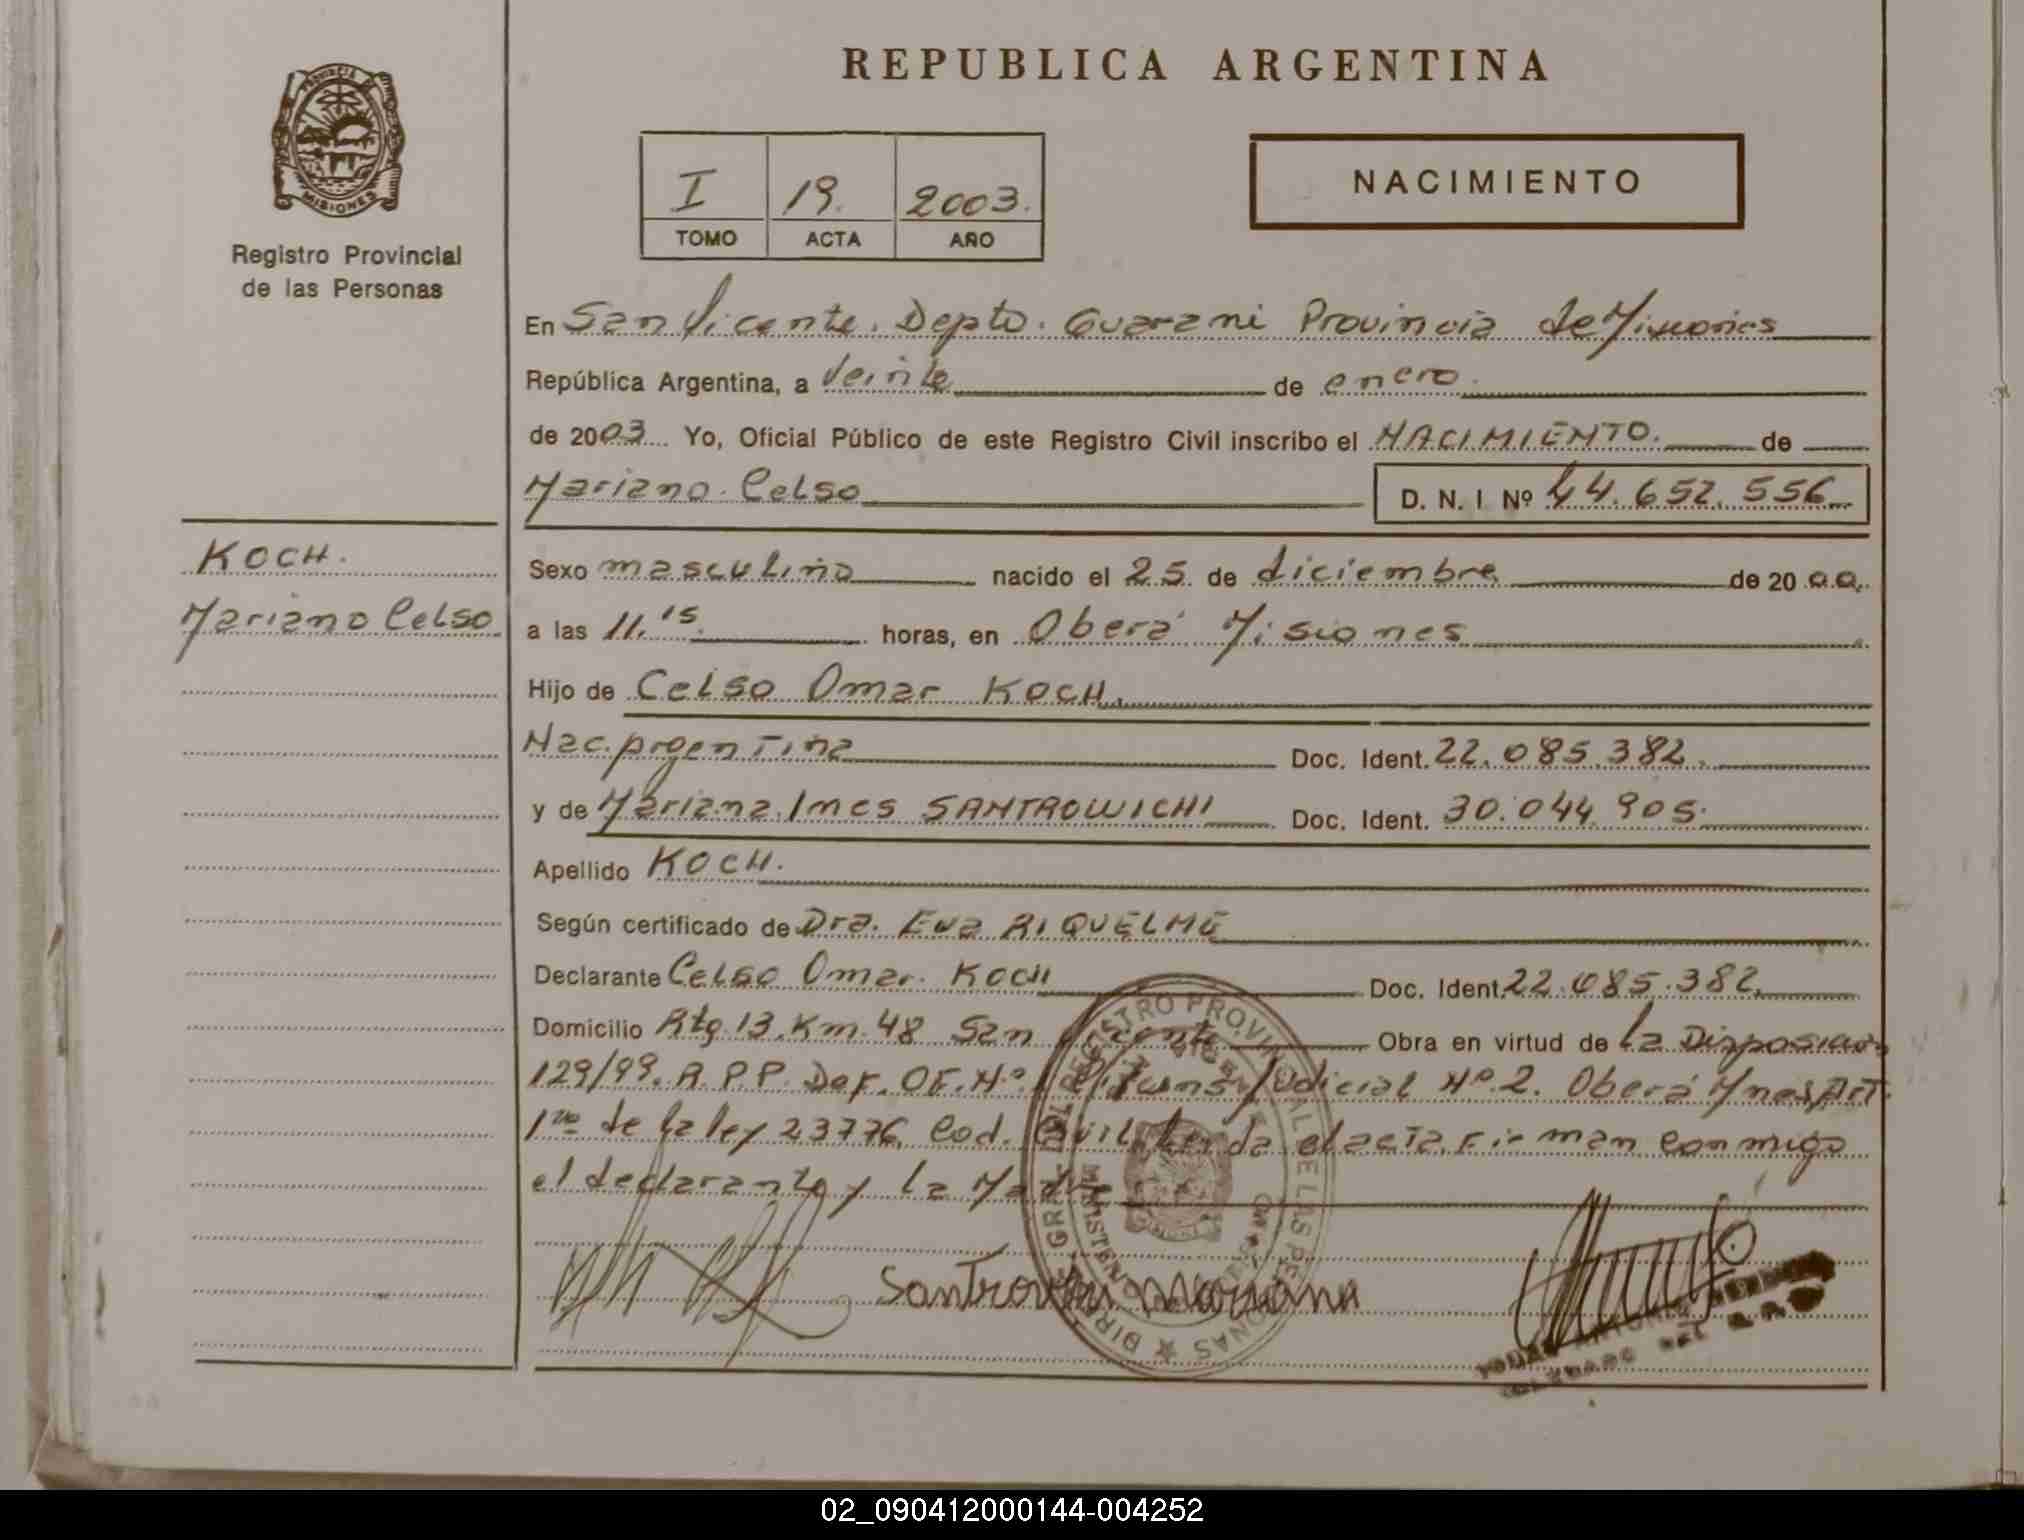 REPUBLICA ARGENTINA
PROVINCIA DE
MISIONES
Registro Provincial
de las Personas
I 19. 2003.
TOMO ACTA AÑO
NACIMIENTO
En San Vicente. Depto. Guarani Provincia de Misiones
República Argentina, a Veinte de enero.
de 2003 Yo, Oficial Público de este Registro Civil inscribo el NACIMIENTO. de
Mariano Celso D. N. I Nº 44.652.556
KOCH.
Mariano Celso
Sexo masculino nacido el 25 de diciembre de 2000.
a las 11.15 horas, en Oberá Misiones
Hijo de Celso Omar KOCH.
Nac. Argentina Doc. Ident. 22.085.382.
y de Mariana Ines SANTROWICHI Doc. Ident. 30.044.905.
Apellido KOCH.
Según certificado de Dra. Eva RIQUELME
Declarante Celso Omar KOCH Doc. Ident. 22.085.382
Domicilio Rta. 13. Km. 48 San Vicente Obra en virtud de La Disposicion
129/99. R.P.P. Def. OF. Nº Judicial Nº 2. Oberá Mnes Art.
1ro de la ley 23776. Cod. Civil. Leida el acta. Firman conmigo
el declarante y la Madre
Mariana
DIREC. GRAL. DEL REGISTRO PROVINCIAL DE LAS PERSONAS
02_090412000144-004252